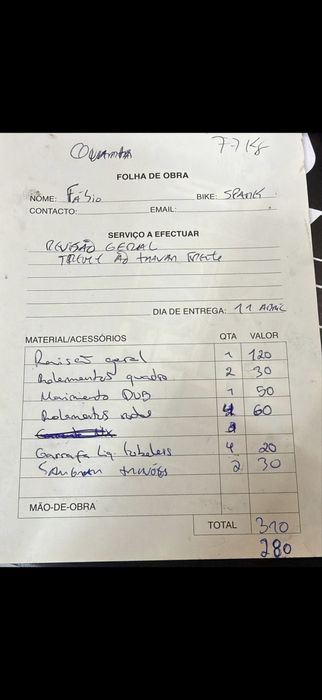 Quarta 7-7 Kg
FOLHA DE OBRA
NOME: Fábio BIKE: SPARK
CONTACTO: EMAIL:
SERVIÇO A EFECTUAR
REVISÃO GERAL
TREME AO TRAVAR FRENTE
DIA DE ENTREGA: 11 ABRIL
MATERIAL/ACESSÓRIOS QTA VALOR
Revisão geral 1 120
Rolamentos quadro 2 30
Movimento DUB 1 50
Rolamentos rodas 4 60
Garrafa Liq. tubeless 4 20
SANGRAR travões 2 30
MÃO-DE-OBRA
TOTAL 310
280